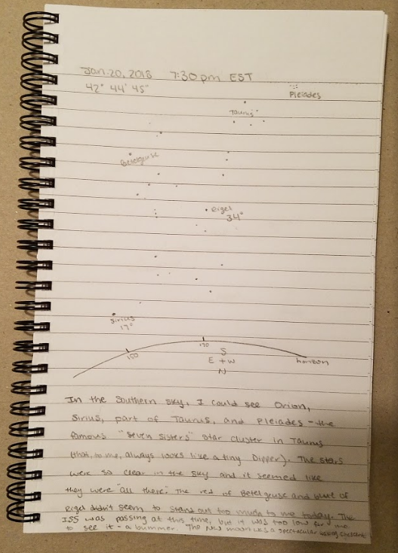 Jan 20, 2018 7:30 pm EST
42° 44' 45"
Pleiades
Taurus
Betelgeuse
Rigel
34°
Sirius
17°
150
170
S
E + W
N
horizon
In the Southern sky, I could see Orion,
Sirius, part of Taurus, and Pleiades - the
famous "Seven Sisters" star cluster in Taurus
(that, to me, always looks like a tiny Dipper). The stars
were so clear in the sky and it seemed like
they were "all there". The red of Betelgeuse and blue of
Rigel didn't seem to stand out too much to me today. The
ISS was passing at this time, but it was too low for me
to see it - a bummer. The was a spectacular